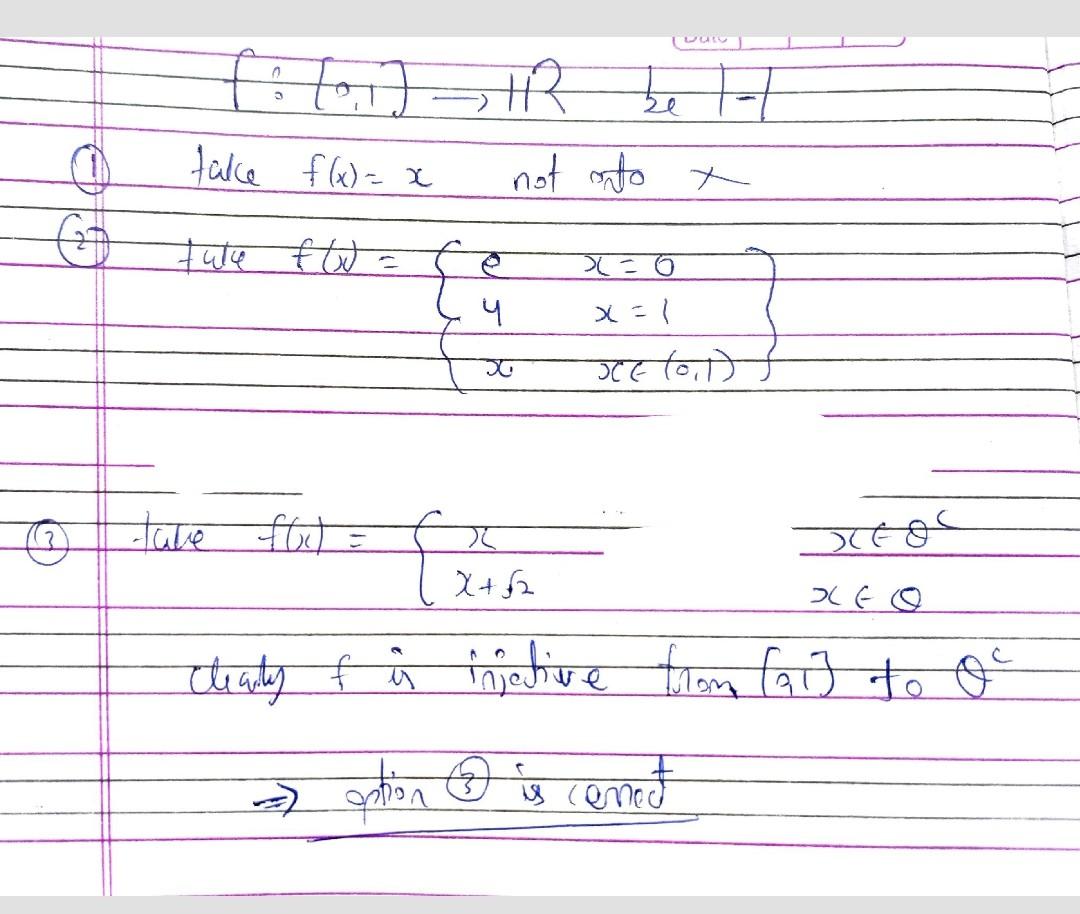 Date
f : [0,1] → IR be 1-1
① take f(x) = x not onto ×
② take f(x) = { e x = 0
4 x = 1
x x ∈ (0,1) }
③ take f(x) = { x x ∈ Q^c
x + √2 x ∈ Q
clearly f is injective from [0,1] to Q^c
⇒ option ③ is correct